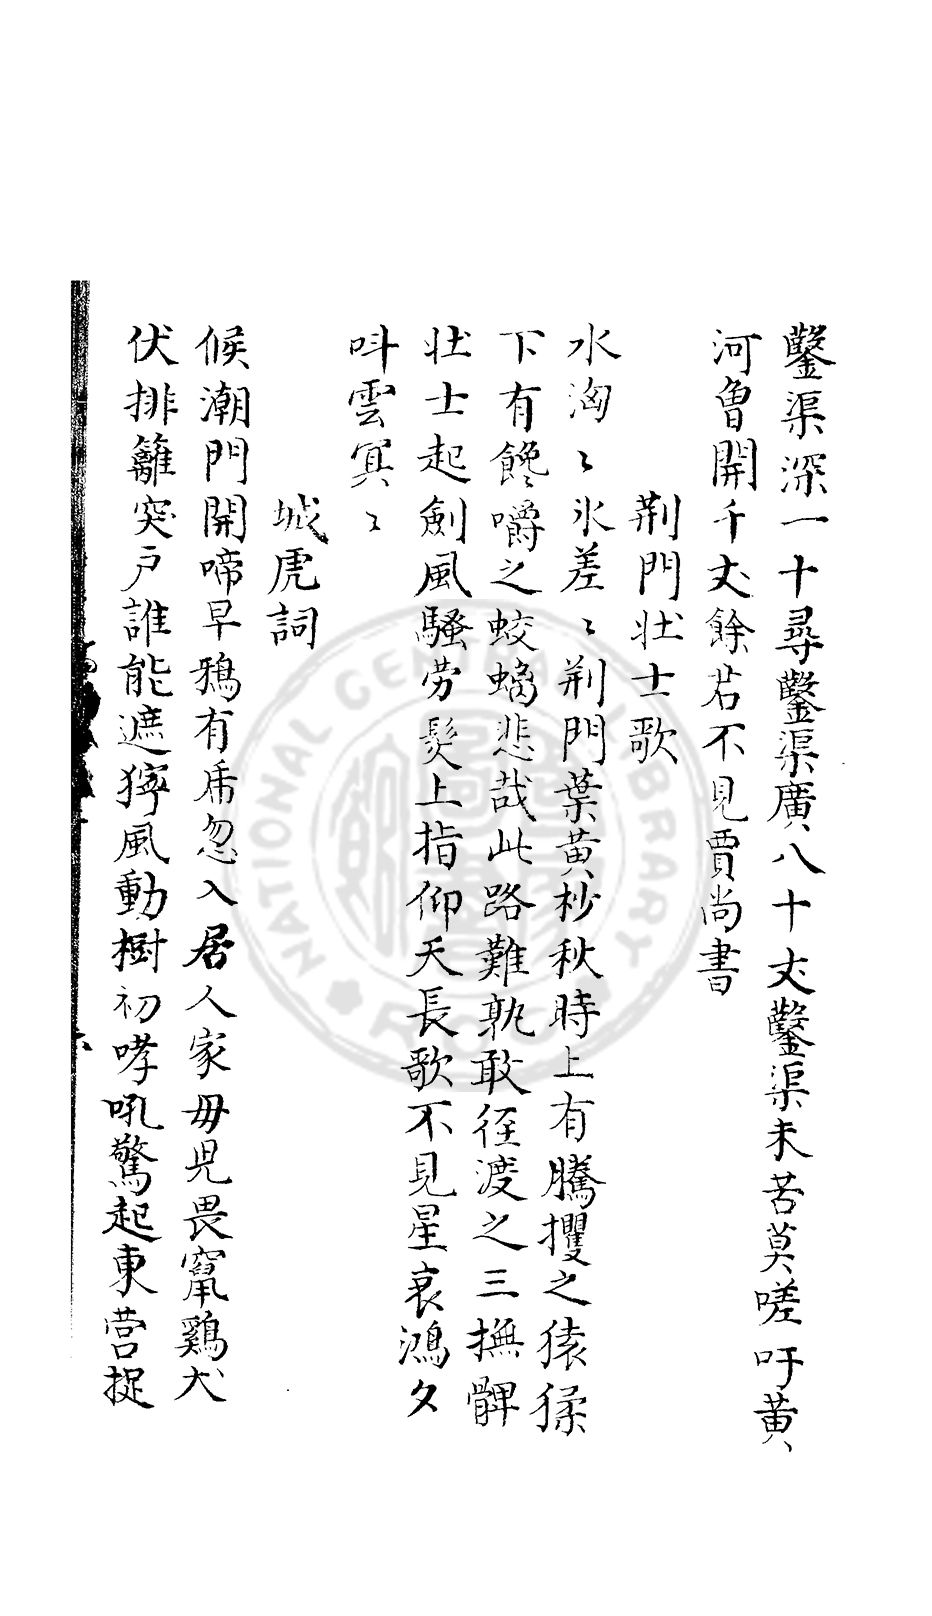 鑿渠深一十尋鑿渠廣八十丈鑿渠未苦莫嗟吁黄
河曾開千丈餘君不見賈尚書
荆門壯士歌
水洶〻氷差〻荆門葉黄杪秋時上有騰攫之猿猱
下有饞嚼之蛟螭悲哉此路難孰敢徑渡之三撫髀
壯士起劍風騷勞髮上指仰天長歌不見星哀鴻夕
呌雲冥〻
城虎詞
候潮門開啼早鴉有虎忽入居人家毋児畏竄鷄犬
伏排籬突戸誰能遮獰風動樹初哮吼驚起東營捉
NATIONAL CENTRAL LIBRARY